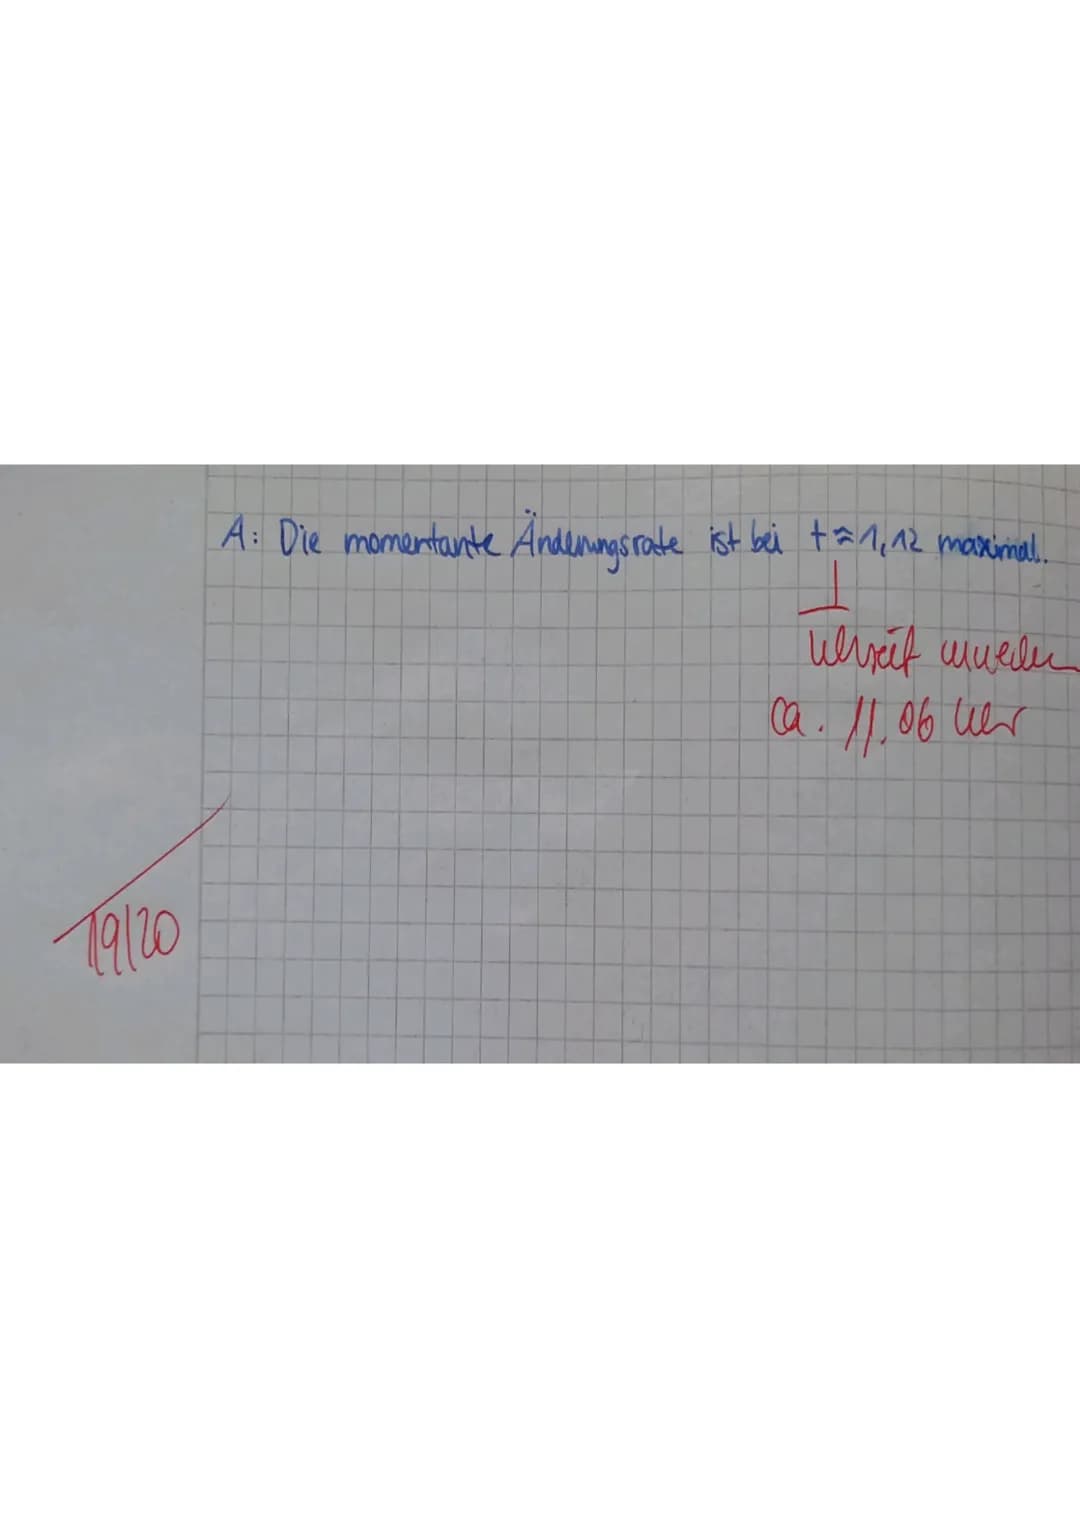 A: Die momentante Änderungsrate ist bei t ≈ 1,12 maximal.
Uhrzeit
ca. 11.06 Uhr
19/20